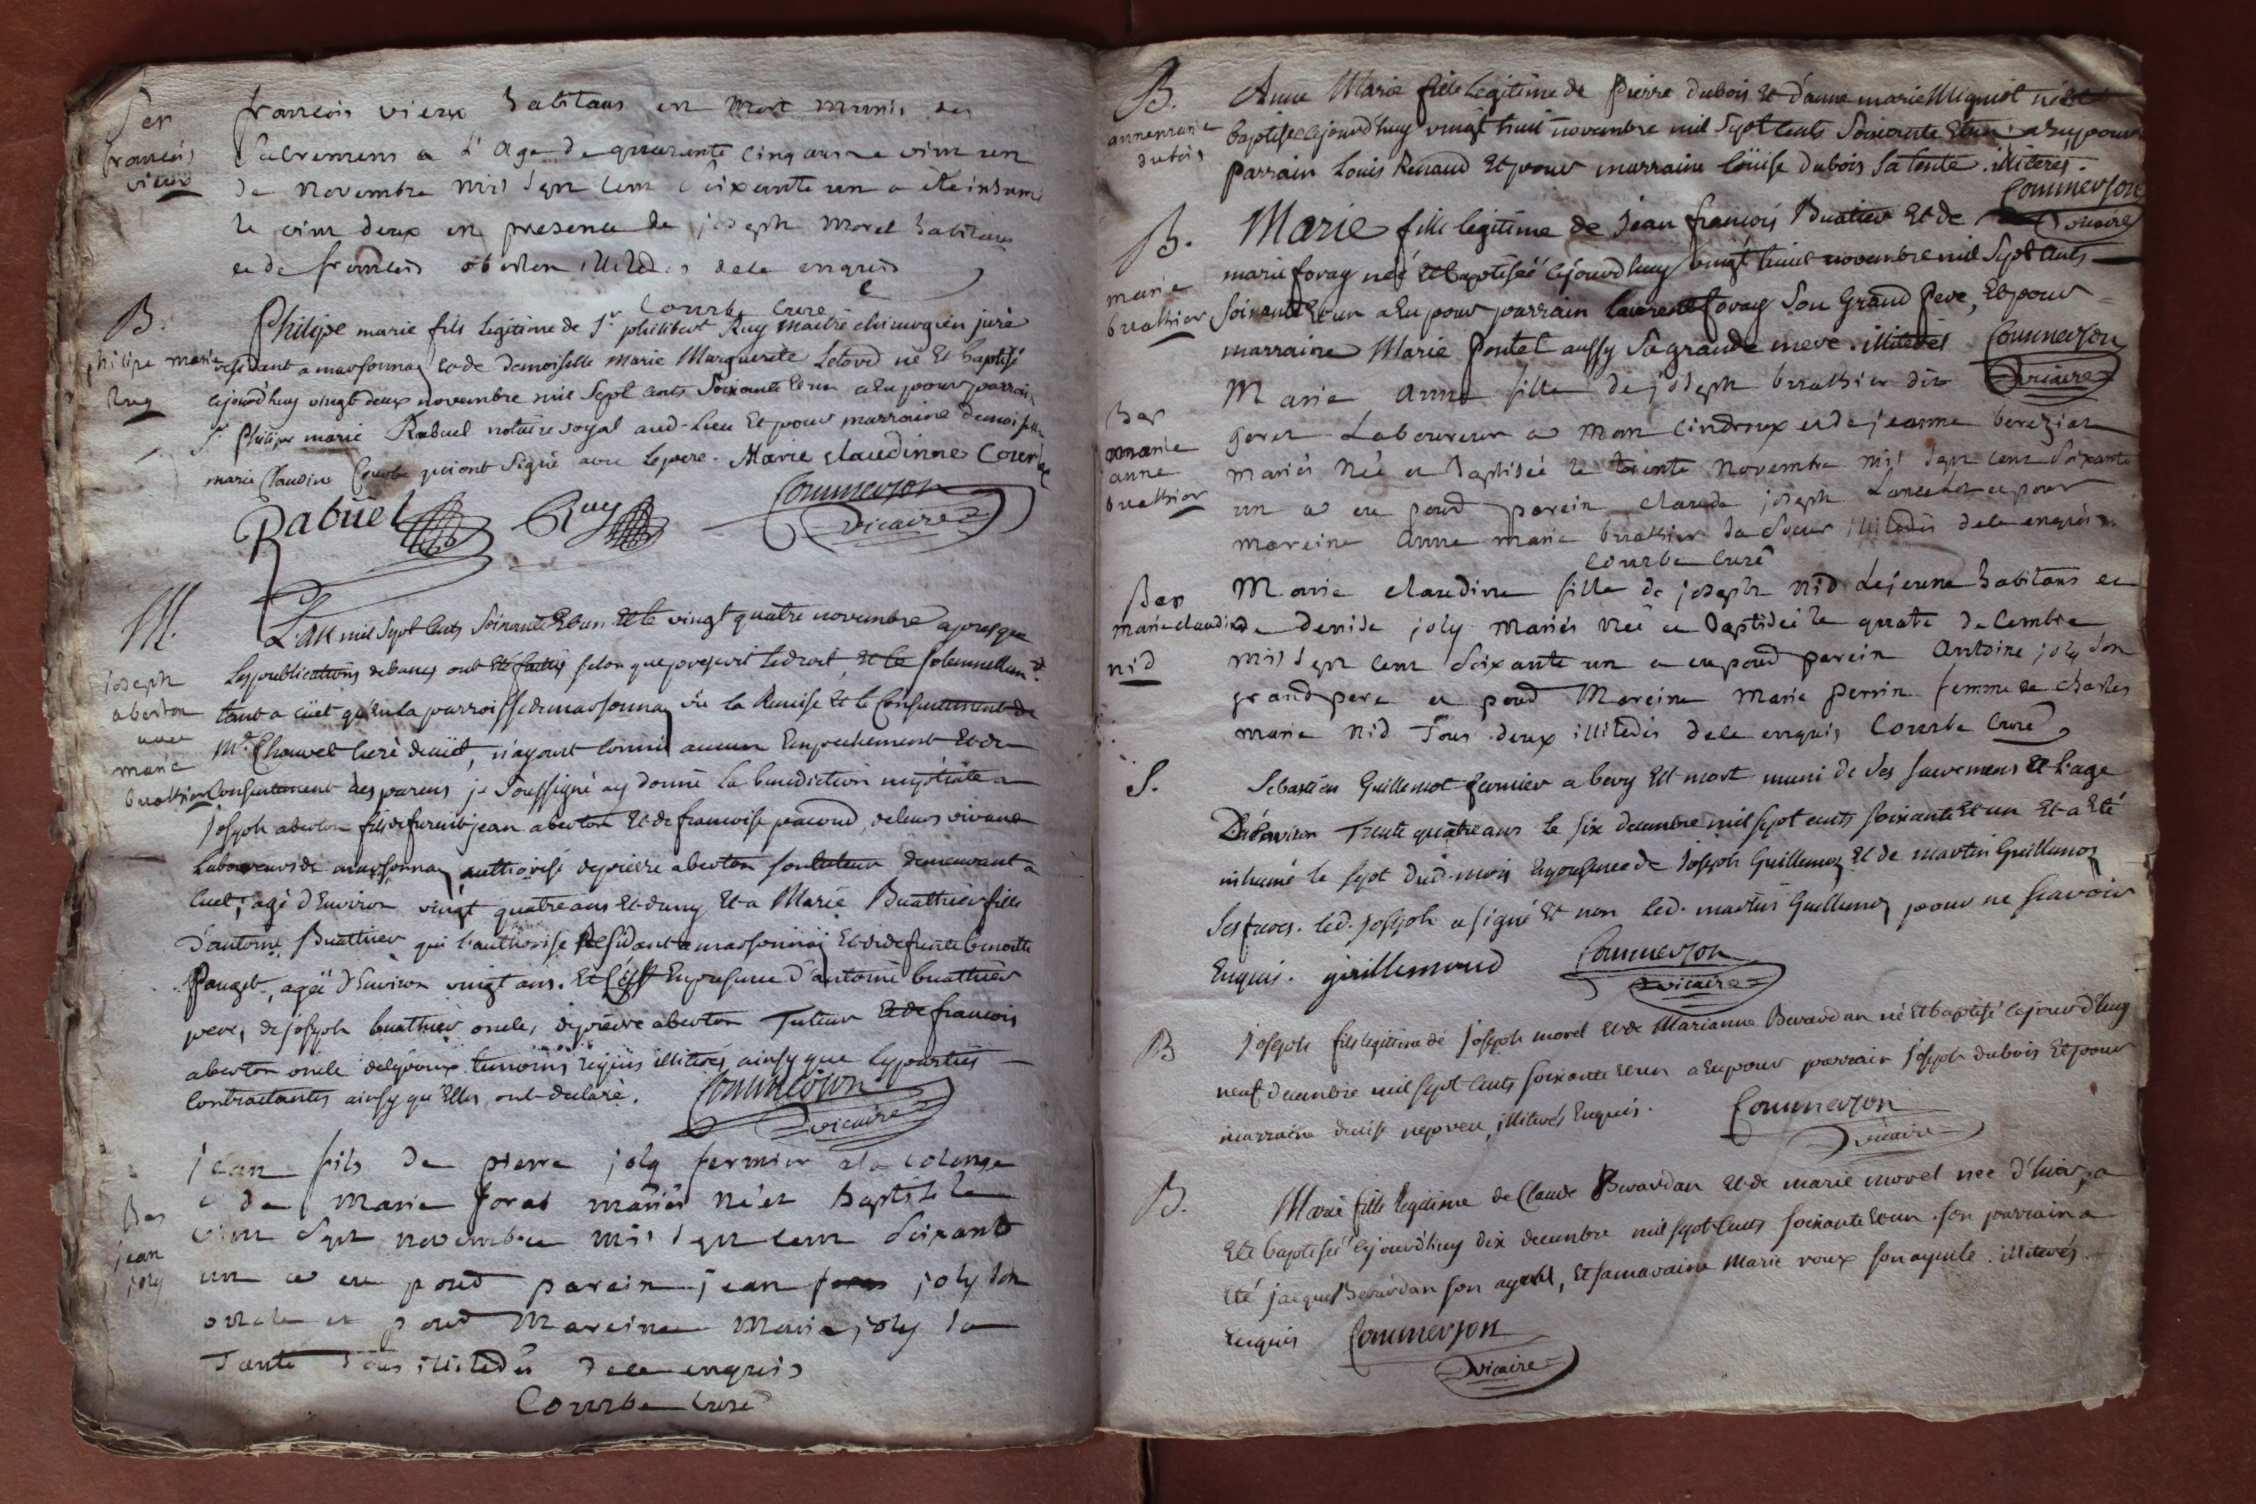 Ser
francois
vieux
francois vieux habitans est mort munis des
sacremens a l'age de quarante cinq ans le vint un
de novembre mil sept cent soixante un a été inhumé
le vint deux en presence de joseph morel habitans
et de francois aberton illiteres de ce enquis
Courbe Curé
B.
philipe marie
Ruy
Philipe marie fils legitime de Sr philibert Ruy maitre chirurgien juré
residant a marsonnay et de demoiselle marie Marguerite Letord né et baptisé
cejourd'huy vingt deux novembre mil sept cents soixante et un a eu pour parrain
Sr philipe marie Rabuel notaire royal aud. lieu et pour marraine demoiselle
marie Claudine Courbe qui ont signé avec le pere. Marie claudinne Courbe
Rabuel Ruy Commerson
vicaire
M.
joseph
aberton
avec
marie
buathier
L'an mil sept cents soixante et un et le vingt quatre novembre apres que
les publications de bancs ont été faites selon que prescrit le droit et la solemnellem.t
tant a cuet qu'en la parroisse de marsonnay vu la Remise et le Consentement de
Mr. Chauvet Curé de cuet, n'ayant connu aucun Empechement et du
Consentement des parens je soussigné ay donné la benediction nuptiale a
joseph aberton fils de furent jean aberton et de francoise pacoud, de leurs vivans
Laboureurs de marsonnay authorisé de pierre aberton son tuteur demeurant a
Cuet, agé d'Environ vingt quatre ans et d'une part et a Marie Buathier fille
d'antoine Buathier qui l'authorise Residant a marsonnay et de defunte benoitte
Pauget, agée d'Environ vingt ans. Et c'est En presence d'antoine buathier
pere, de joseph buathier oncle, de pierre aberton Tuteur et de francois
aberton oncle de l'epoux temoins requis illiterés ainsy que les parties
contractantes ainsy qu'Elles ont declaré. Commerson
vicaire
Bas
jean
joly
jean fils de pierre joly fermier a la colonge
et de Marie foras mariés né et Baptisé le
vint sept novembre mil sept cent soixante
un a eu pour parein jean joly son
oncle et pour Mareine Marie joly sa
Tante Tous illiterés de ce enquis
Courbe Curé
B.
annemarie
dubois
Anne Marie fille legitime de Pierre dubois et d'anne marie Migniot née et
baptisée cejourd'huy vingt huit novembre mil sept cents soixante et un a eu pour
parrain Louis Renaud et pour marraine loüise dubois sa tente. illiteres.
Commerson
vicaire
B.
marie
buathier
Marie fille legitime de jean francois Buatier et de
marie foray née et baptisée cejourd'huy vingt huit novembre mil sept cents
soixante et un a eu pour parrain laurent foray son Grand Pere, et pour
marraine Marie Poutel aussy sa grande mere. illiterés Commerson
vicaire
Bas
marie
anne
buathier
Marie Anne fille de joseph buathier dit
goret Laboureur a Mon Cindroux et de jeanne berezier
mariés née et Baptisée le trente novembre mil sept cent soixante
un a eu pour parein claude joseph Lancelot et pour
mareine anne marie buathier sa soeur illiterés de ce enquis.
Courbe Curé
Bas
marie claudine
nid
Marie claudine fille de joseph nid Lejeune habitans et
de denise joly mariés née et Baptisée le quatre decembre
mil sept cent soixante un a eu pour parein Antoine joly son
grand pere et pour Mareine Marie perrin femme de charles
marie nid Tous deux illiterés de ce enquis Courbe Curé
S.
Sebastien Guillemot fermier a bevy Est mort muni de ses sacremens et L'age
D'Environ Trente quatre ans le six decembre mil sept cents soixante et un et a Eté
inhumé le sept dud. mois En presence de joseph Guillemoz et de martin Guillemoz
ses freres. led. joseph a signé et non led. martin Guillemoz pour ne scavoir
Enquis. guillemoud Commerson
vicaire
B
joseph fils legitime de joseph morel et de Marianne Berardan né et baptisé cejourd'huy
neuf decembre mil sept cents soixante et un a eu pour parrain joseph dubois et pour
marraine denise nepveu, illiterés Enquis. Commerson
vicaire
B.
Marie fille legitime de Claude Berardan et de marie morel née d'hier, a
Eté baptisée cejourd'huy dix decembre mil sept cents soixante et un. son parrain a
Eté jacques Berardan son ayeul, et sa maraine Marie roux son ayeule. illiterés
Enquis Commerson
vicaire